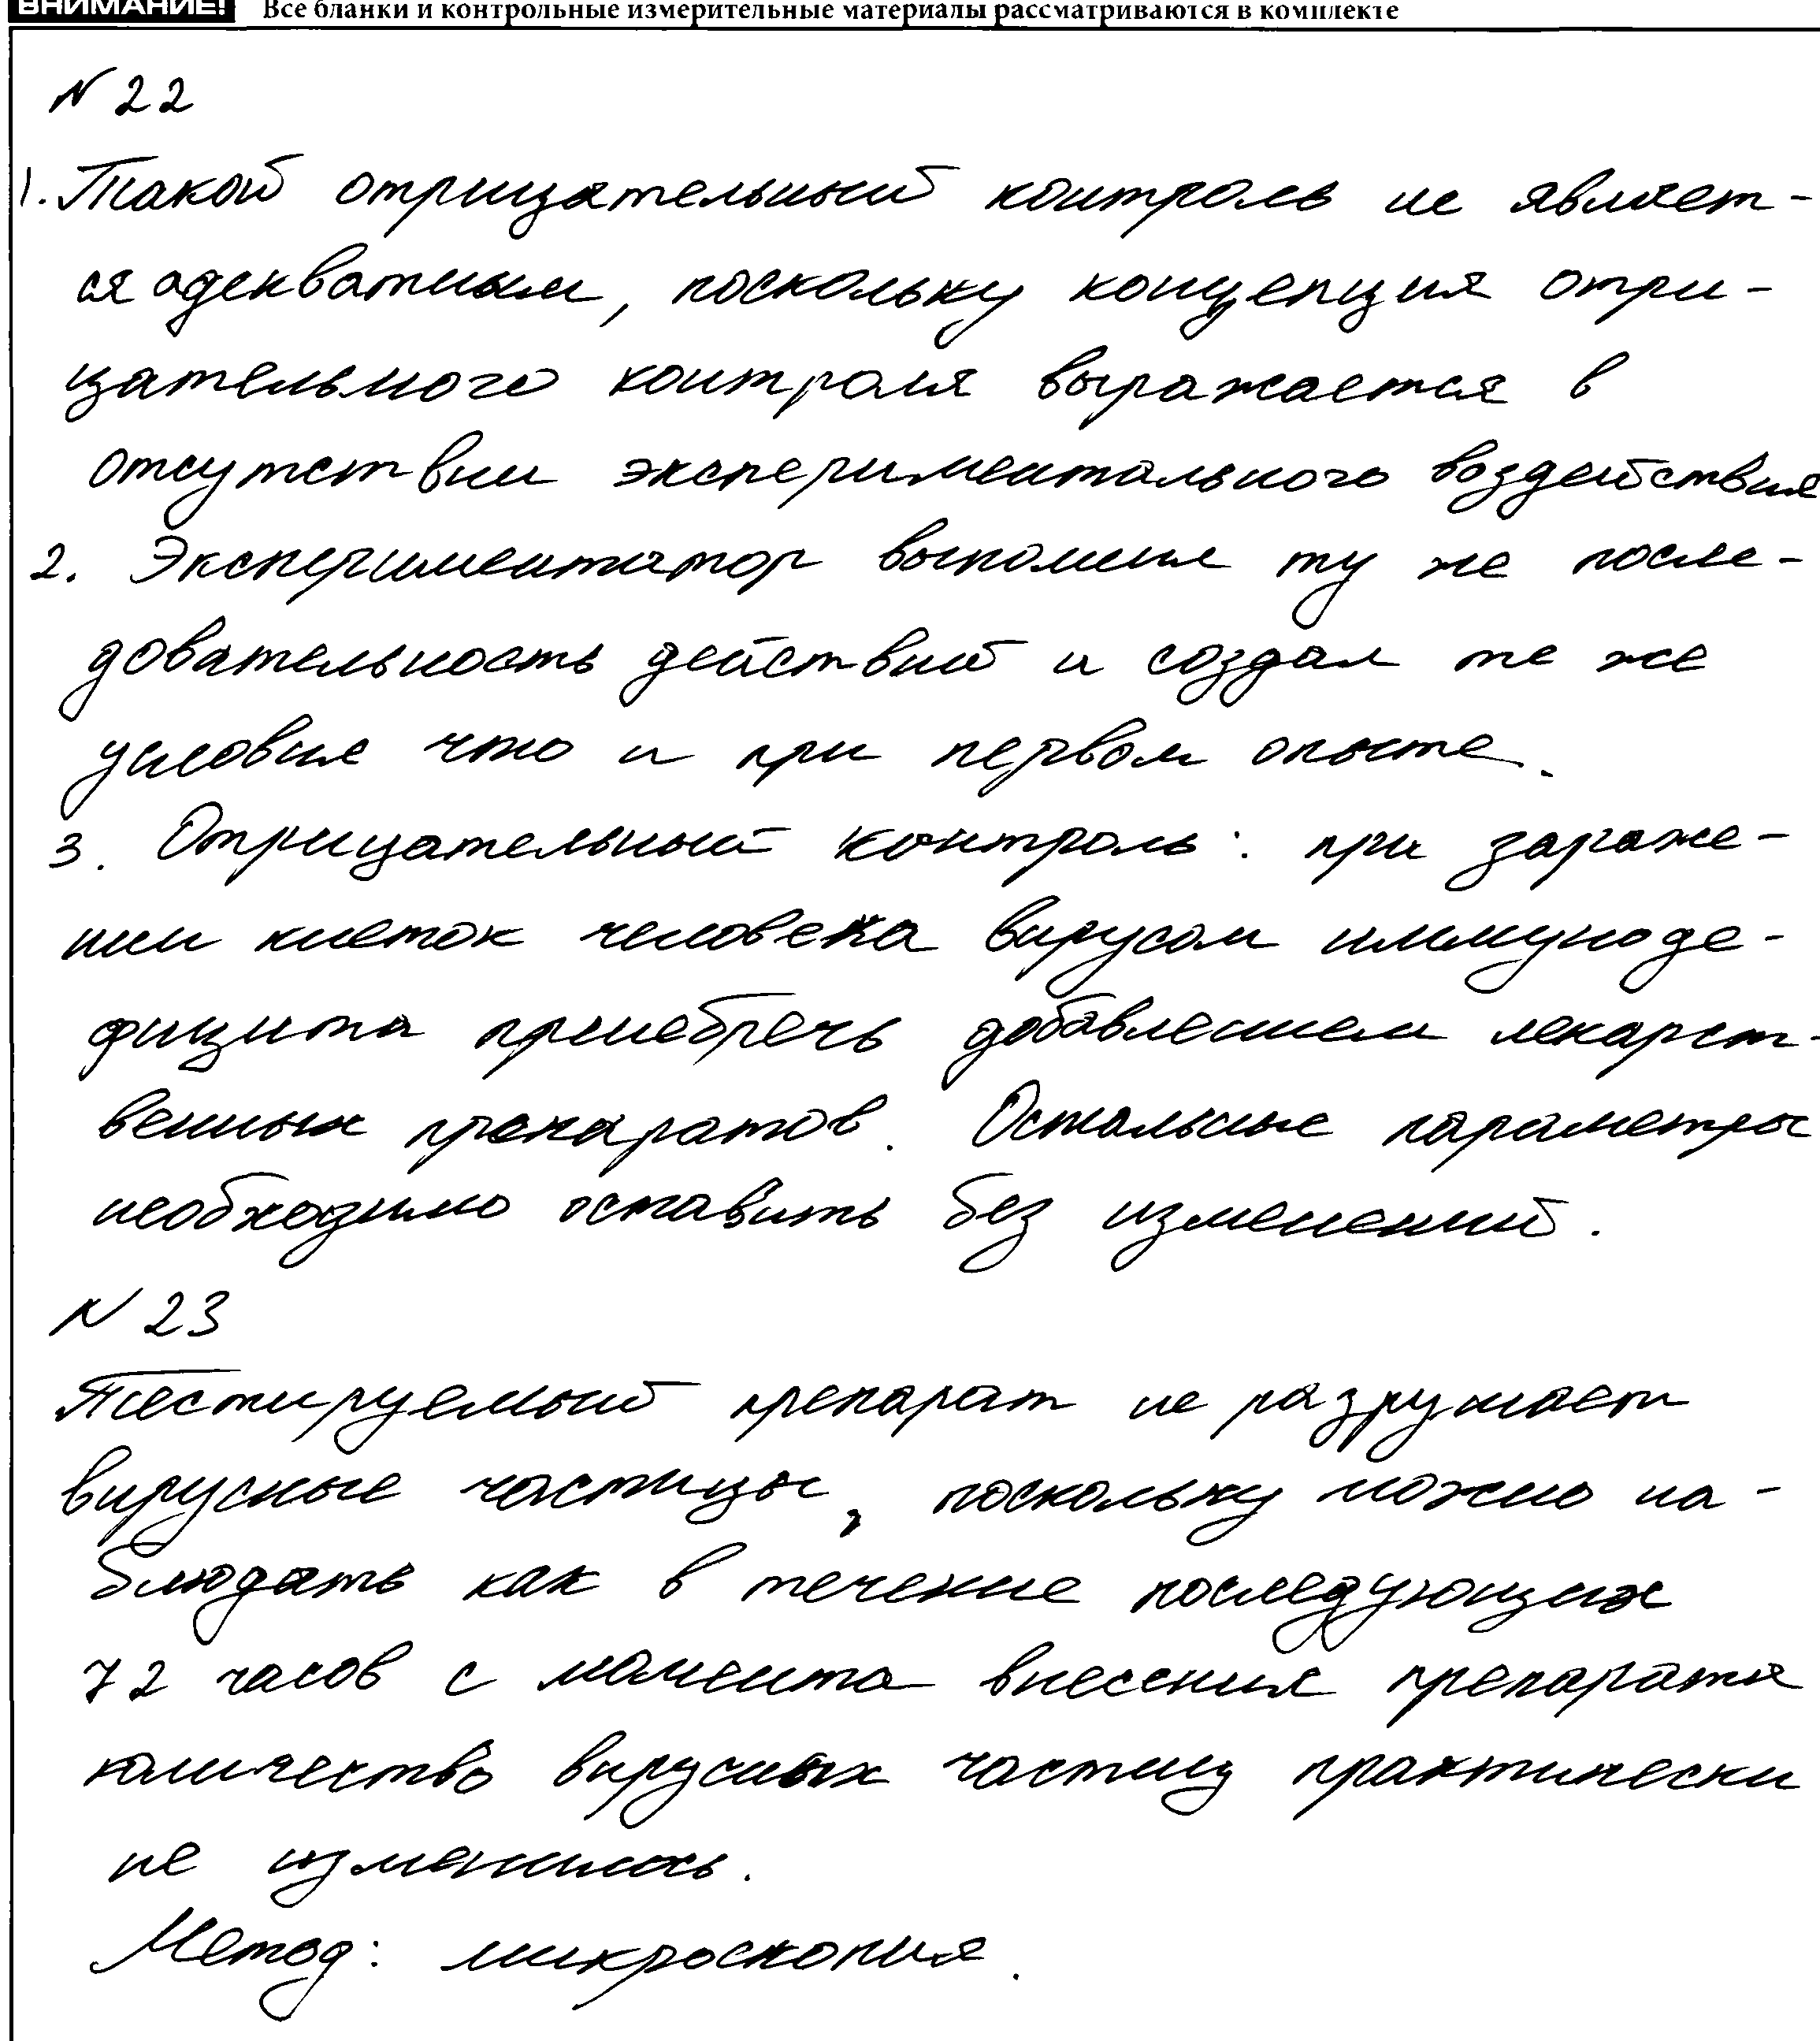 ВНИМАНИЕ! Все бланки и контрольные измерительные материалы рассматриваются в комплекте
N 22
1. Такой отрицательный контроль не являет-
ся адекватным, поскольку концепция отри-
цательного контроля выражается в
отсутствии экспериментального воздействия
2. Экспериментатор выполнил ту же после-
довательность действий и создал те же
условия что и при первом опыте.
3. Отрицательный контроль: при зараже-
нии клеток человека вирусом иммуноде-
фицита пренебречь добавлением лекарст-
венных препаратов. Остальные параметры
необходимо оставить без изменений.
N 23
Тестируемый препарат не разрушает
вирусные частицы, поскольку можно на-
блюдать как в течение последующих
72 часов с момента внесения препарата
количество вирусных частиц практически
не изменилось.
Метод: микроскопия.